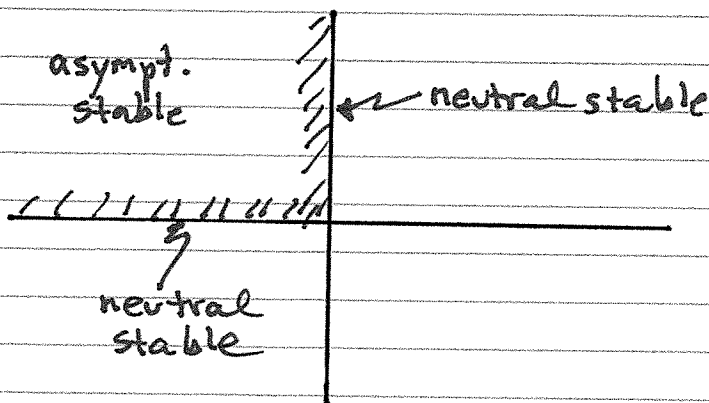 asympt.
stable
neutral stable
neutral
stable